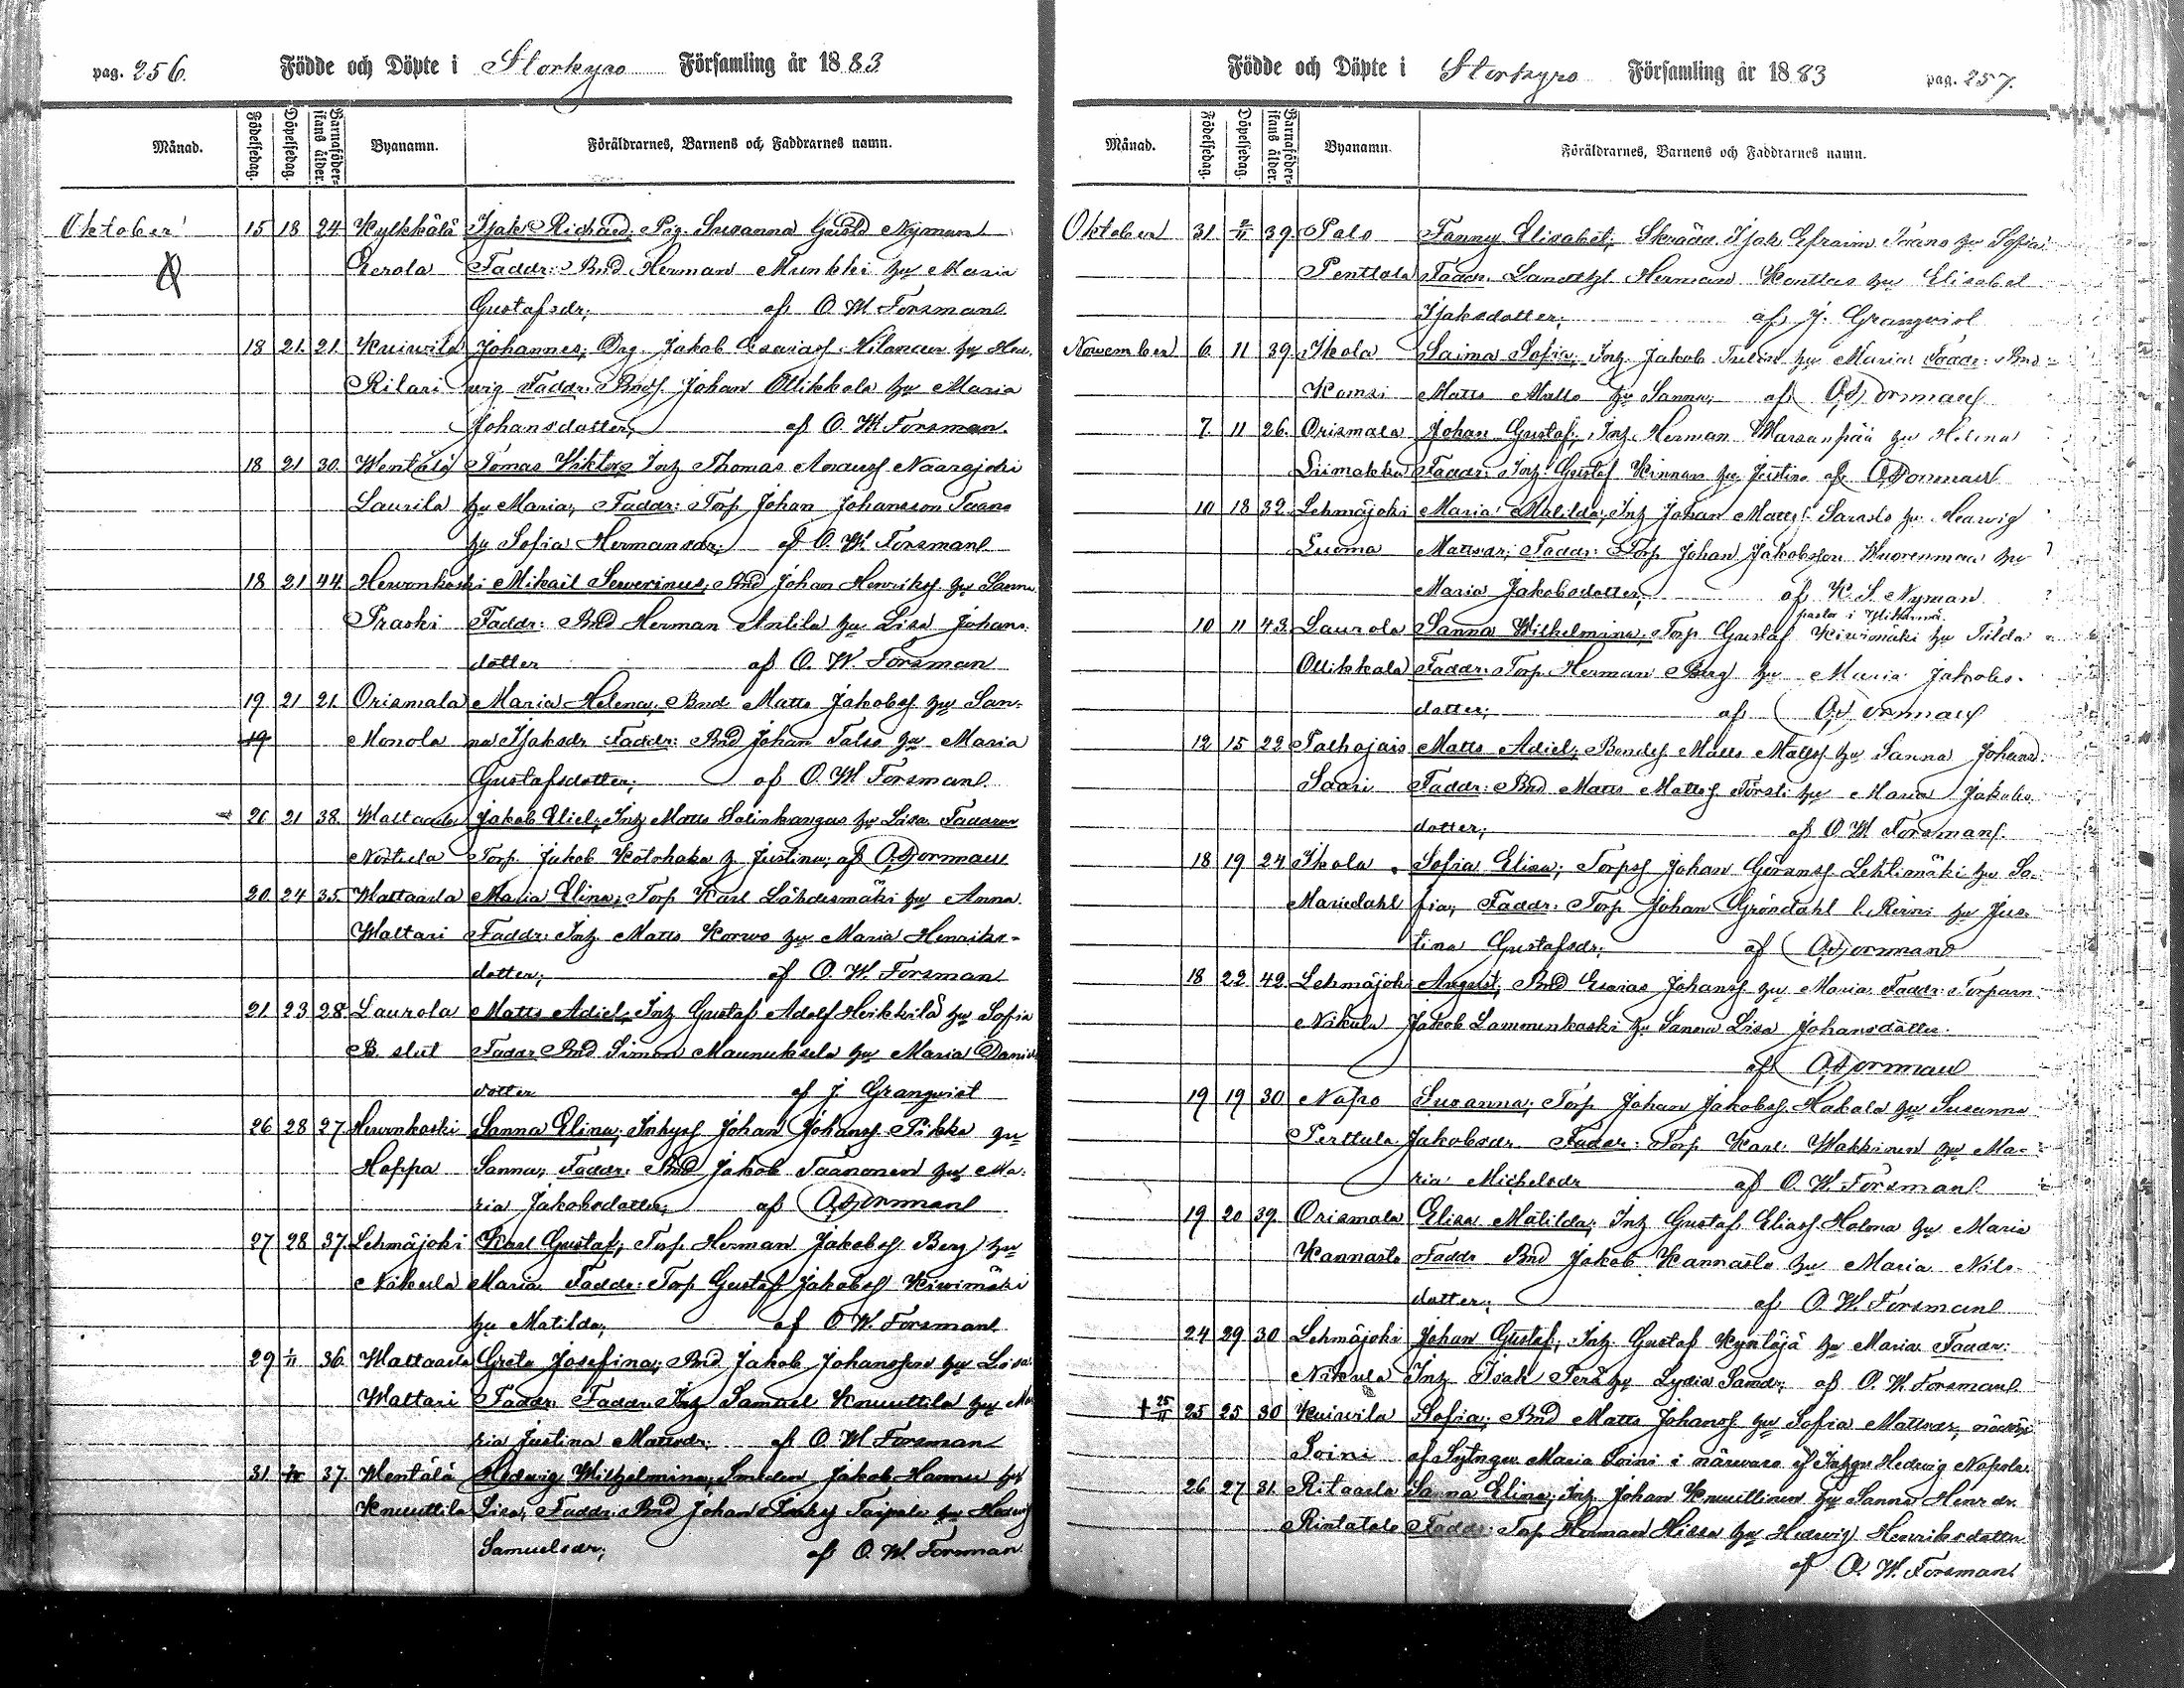 pag. 256. Födde och Döpte i Storkyro Församling år 1883
Månad. Födelsedag. Döpelsedag. Barnaföderskans ålder. Byanamn. Föräldrarnes, Barnens och Faddrarnes namn.
Oktober 15 18 24 Kylkkälä Isak Richard; Pig. Susanna Nyman
Faddr: Bnd Herman Munkki hu Maria
Gustafsdr; af O. W. Forsman
18 21. 21. Kuiwila Johannes; Jakob Esaiass. hu Hed-
Rilari wig Faddr: Bnds. Johan Ollikkala hu Maria
Johansdotter; af O. W. Forsman.
18 21 30. Wentälä Tomas Viktor; Inh Thomas
Laurila hu Maria; Faddr: Torp Johan Johansson
hu Sofia Hermansdr; af O. W. Forsman
18 21 44. Herwonkoski Mikail Sewerinus; Bnd Johan Henrikss. hu Sanna
Praski Faddr: Bnd Herman Antila hu Lisa Johans
dotter af O. W. Forsman
19 21 21. Orismala Maria Helena; Bnd Matts Jakobss. hu San-
19 Monola na Isaksdr Faddr: Bnd Johan Talso hu Maria
Gustafsdotter; af O. W. Forsman
26 21 38. Waltaala Jakob Eliel; Inh Matts Salinkangas hu Lisa
Torp. Jakob Kotohaka h Justina; af O. Forsman
20 24 35. Waltaala Maria Elina; Torp Karl Lähdesmäki hu Anna
Waltari Faddr: Inh Matts Korwo hu Maria Henriks-
dotter; af O. W. Forsman
21 23 28 Laurola Matts Adiel; Inh Gustaf Adolf Heikkilä hu Sofia
B. slut Faddr Bnd Simon Maunuksela hu Maria
dotter af J. Granqvist
26 28 27. Herwonkoski Sanna Elina; Inhyss Johan Johanss. Pikka hu
Hoppa Sanna; Faddr: Bnd Jakob Taanonen hu Ma-
ria Jakobsdotter; af O. Forsman
27 28 37. Lehmäjoki Karl Gustaf; Torp. Herman Jakobss Berg hu
Nikula Maria Faddr: Torp Gustaf Jakobss Kiwimäki
hu Matilda; af O. W. Forsman
29 1/11 36. Waltaala Greta Josefina; Bnd Jakob Johansson hu Lisa
Waltari Faddr: Faddr. Inh Samuel Knuuttila hu Ma
ria Justina Mattsdr; af O. W. Forsman
31. 37. Wentälä Hedwig Wilhelmina; Smeden Jakob Hannu hu
Knuuttila Lisa; Faddr: Bnd Johan Taipale hu Hedwig
Samuelsdr; af O. W. Forsman
Födde och Döpte i Storkyro Församling år 1883 pag. 257.
Månad. Födelsedag. Döpelsedag. Barnaföderskans ålder. Byanamn. Föräldrarnes, Barnens och Faddrarnes namn.
Oktober 31 39. Palo Fanny Elisabet; Skrädd. Isak Efraim hu Sofia
Penttola Faddr. Herman Konttas hu Elisabet
Isaksdotter; af J. Granqvist
November 6. 11 39 Ikola Saima Sofia; Inh. Jakob hu Maria Faddr: Bnd
Komsi Matts Matts hu Sanna; af O. Forsman
7. 11 26. Orismala Johan Gustaf; Inh. Herman Warsanpää hu Helena
Liimakka Faddr: Inh. Gustaf Kinnari hu Justina af O. Forsman
10 18 32. Lehmäjoki Maria Matilda; Inh Johan Mattss. hu Hedwig
Luoma Mattsdr; Faddr: Torp Johan Jakobsson Wuorenmaa hu
Maria Jakobsdotter; af K. S. Nyman
pastor i Ylihärmä
10 11 43. Laurola Sanna Wilhelmina; Torp Gustaf Kiwimäki hu Tilda
Ollikkala Faddr: Torp. Herman Berg hu Maria Jakobs-
dotter; af O. Forsman
12 15 22 Palhojais Matts Adiel; Bondes. Matts Mattss. hu Sanna Johansd.
Saari Faddr: Bnd Matts Mattss Försti hu Maria Jakobs
dotter; af O. W. Forsman.
18 19 24 Ikola Sofia Elisa; Torps. Johan Göranss. Lehtimäki hu So-
Mariedahl fia; Faddr: Torp Johan Gröndahl l. hu Jus-
tina Gustafsdr; af O. Forsman
18 22 42. Lehmäjoki August; Bnd Esaias Johanss hu Maria Faddr: Torparn
Nikula Jakob Lammenkoski hu Sanna Lisa Johansdotter.
af O. Forsman
19 19 30 Napo Susanna; Torp Johan Jakobss. Hakala hu Susanna
Perttula Jakobsdr Faddr: Torp Karl Wakkinen hu Ma-
ria Michelsdr af O. W. Forsman
19 20 39. Orismala Elisa Matilda; Inh Gustaf Eliass. Holma hu Maria
Kannasto Faddr Bnd Jakob Kannasto hu Maria Nils-
dotter; af O. W. Forsman
24 29 30 Lehmäjoki Johan Gustaf; Inh. Gustaf hu Maria Faddr:
Nikula Inh Isak Perä hu Lydia Samdr; af O. W. Forsman
+ 25/11 25 25 30 Kuiwila Sofia; Bnd Matts Johanss hu Sofia Mattsdr;
Soini af Maria Soini i närwaro af Hedwig Napola.
26 27 31. Ritaala Sanna Elina; Inh. Johan Knuuttinen hu Sanna Henr dr.
Rintatalo Faddr: Torp Herman Hissa hu Hedwig Henriksdotter
af O. W. Forsman